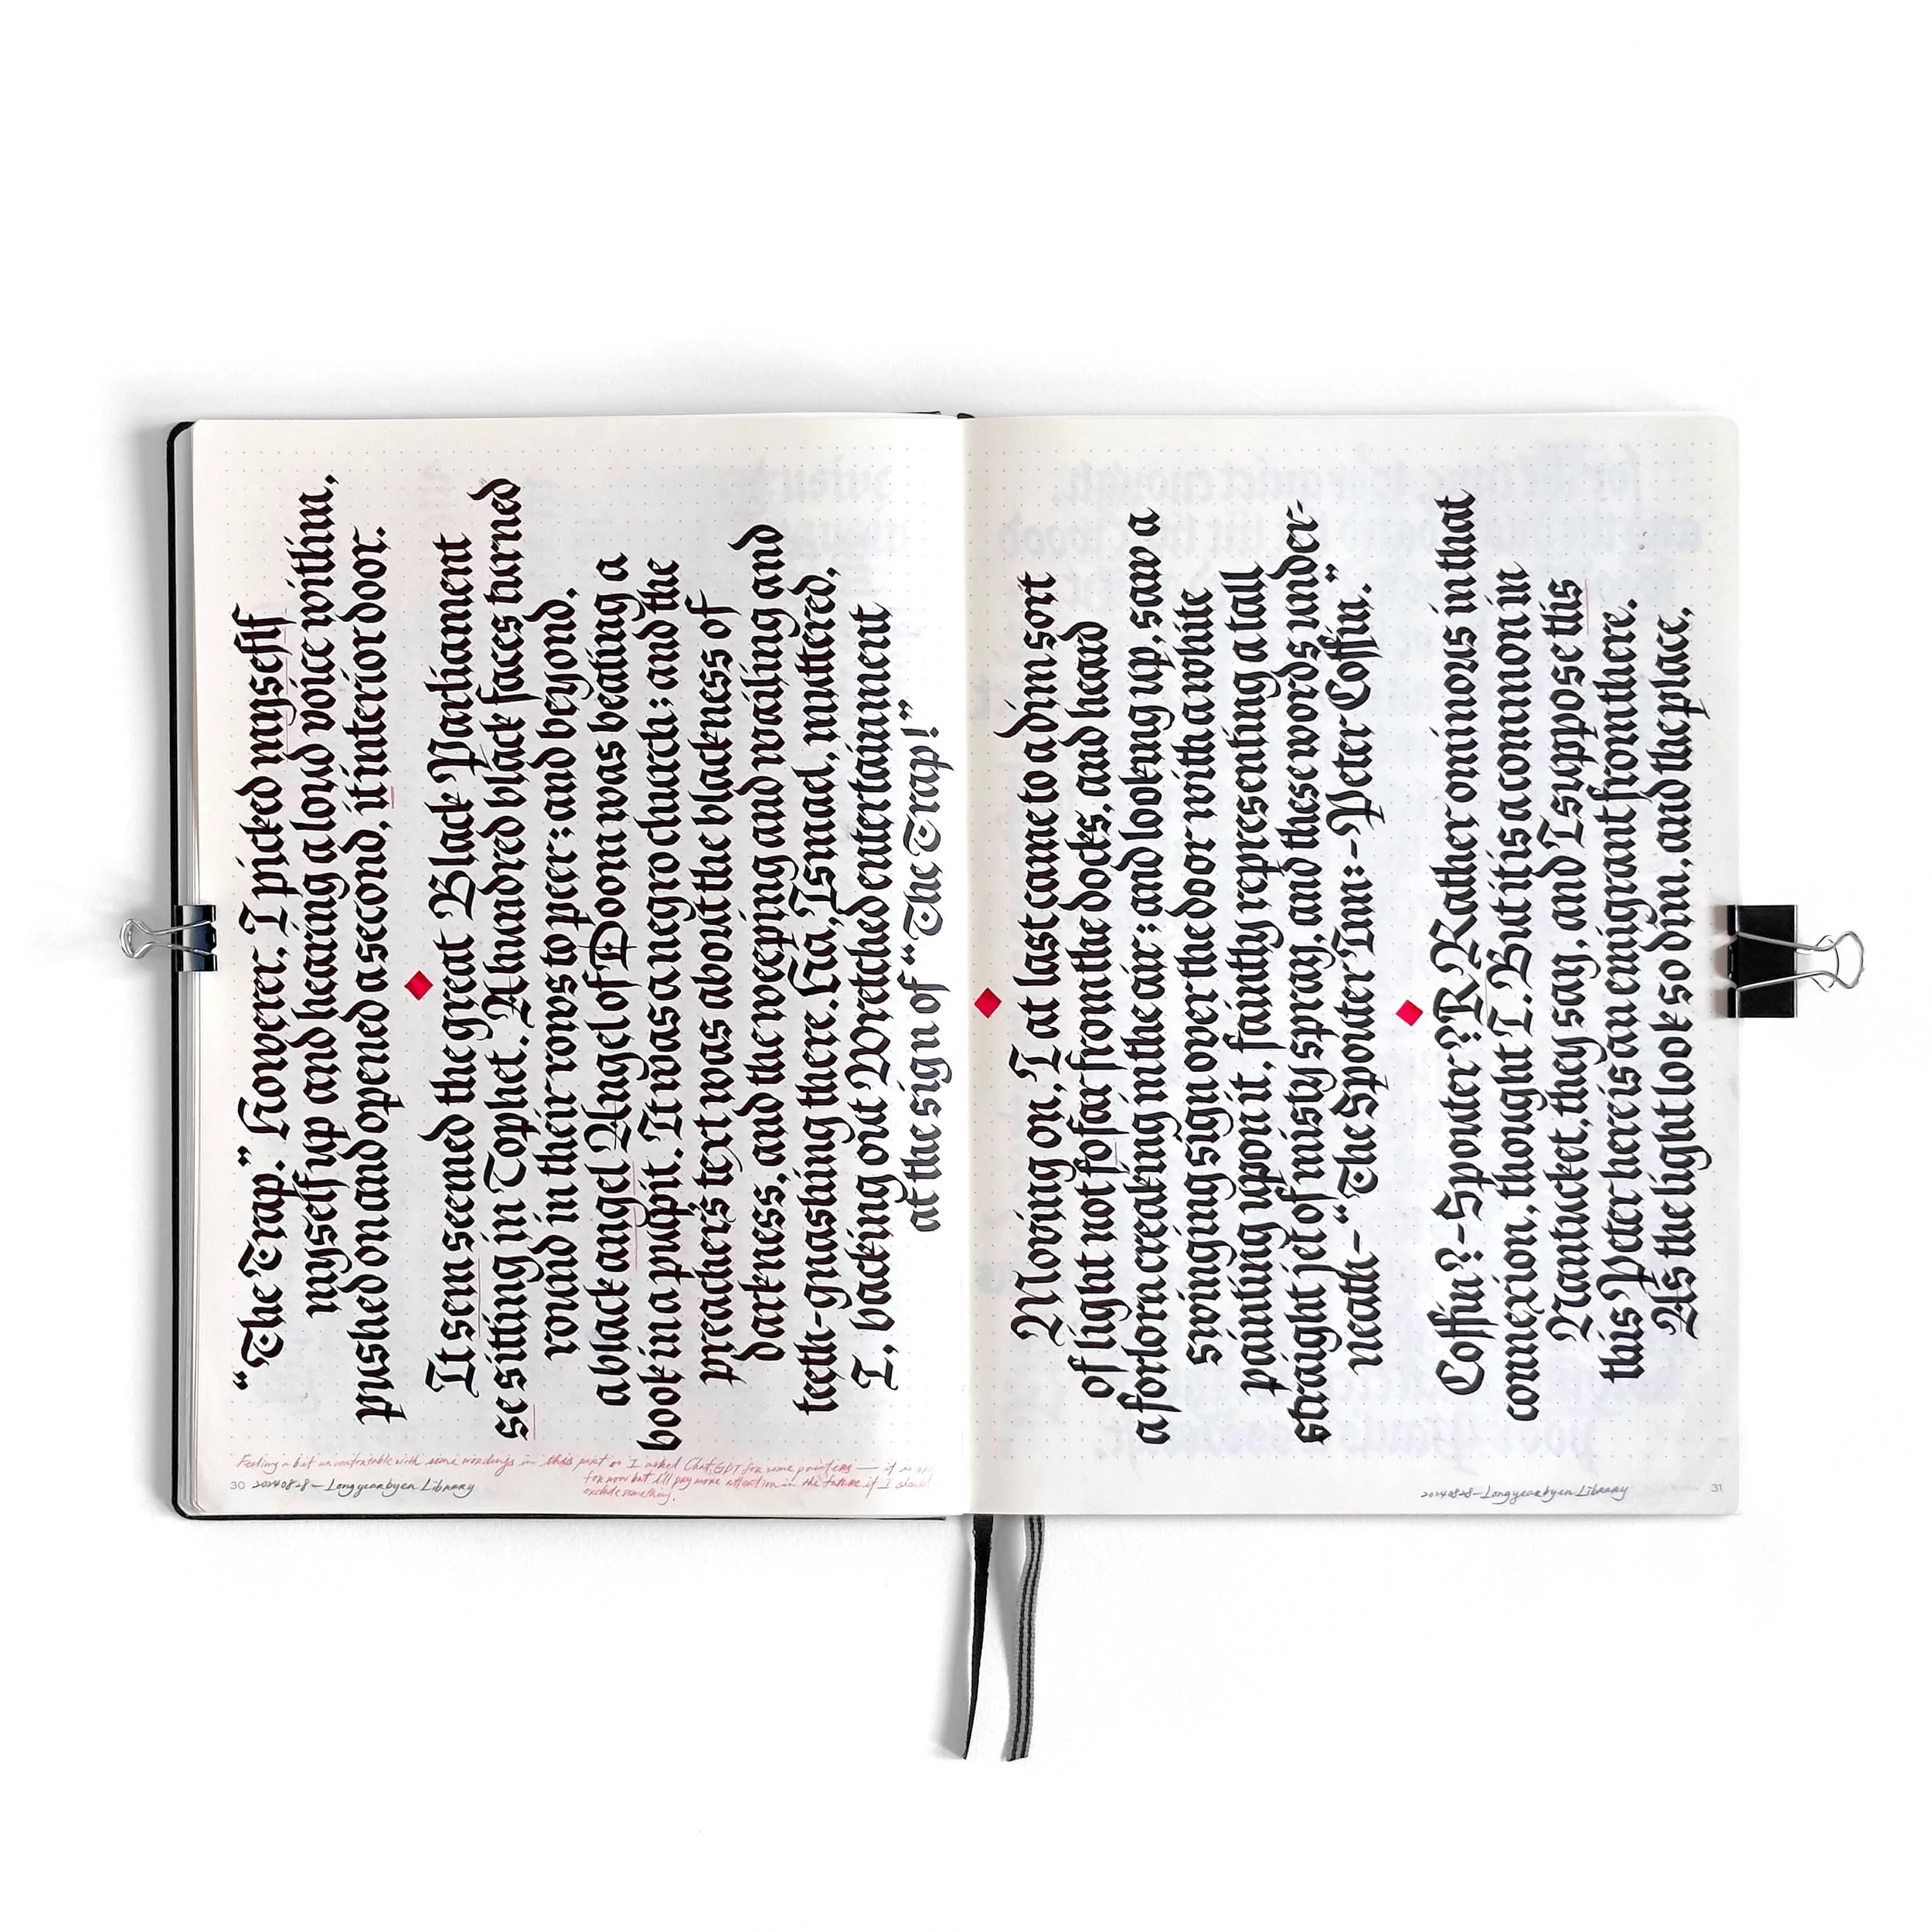 “The Trap.” However, I picked myselff
myself up and hearing a loud voice within,
pushed on and opened a second, it interior door.
It sem seemed the great Black Parliament
se sitting in Tophet. A hundred black faces turned
round in their rows to peer; and beyond,
a black angel Angel of Doom was beating a
book in a pulpit. It was a negro church; and the
preacher's text was about the blackness of
darkness, and the weeping and wailing and
teeth-gnashing there. Ha, Ismael, muttered,
I, backing out Wretched entertainment
at the sign of “The Trap!”
Feeling a bit uncomfortable with some wordings in this part so I asked ChatGPT for some pointers — it is
for now but I'll pay more attention in the future if I should
exclude something.
30 20240828 – Longyearbyen Library
Moving on, I at last came to a dim sort
of light not fo far from the docks, and heard
a forlorn creaking in the air; and looking up, saw a
swinging sign over the door with a white
painting upon it, faintly representing a tall
straight jet of misty spray, and these words under-
neath–“The Spouter Inn:–Peter Coffin.”
Coffin?–Spouter?R Rather ominous in that
connexion, thought I. But it is a common in
Nantucket, they say, and I suppose tis
this Peter here is an emigrant from there.
As the light look so dim, and the place,
20240828–Longyearbyen Library 31